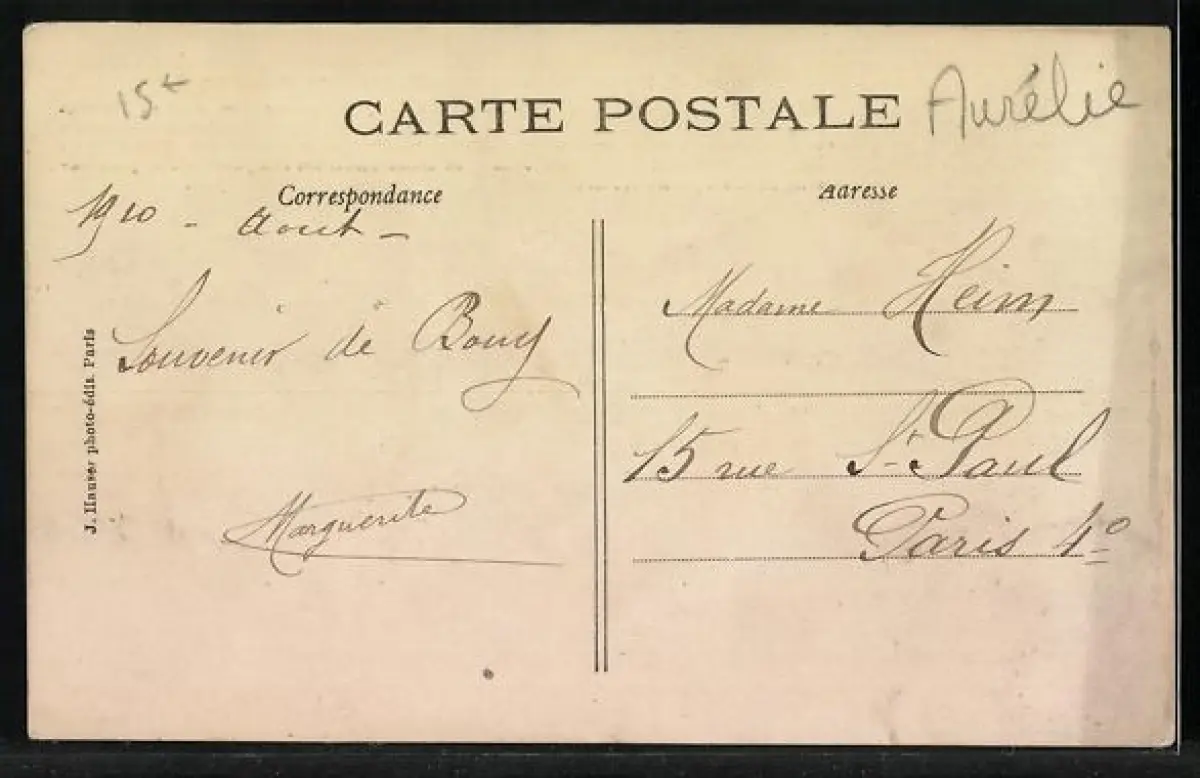 15t
CARTE POSTALE
Aurélie
Correspondance
1910 - Aout -
Souvenir de Bouy
Marguerite
J. Hauser photo-édit. Paris
Adresse
Madame Heim
15 rue St Paul
Paris 4º